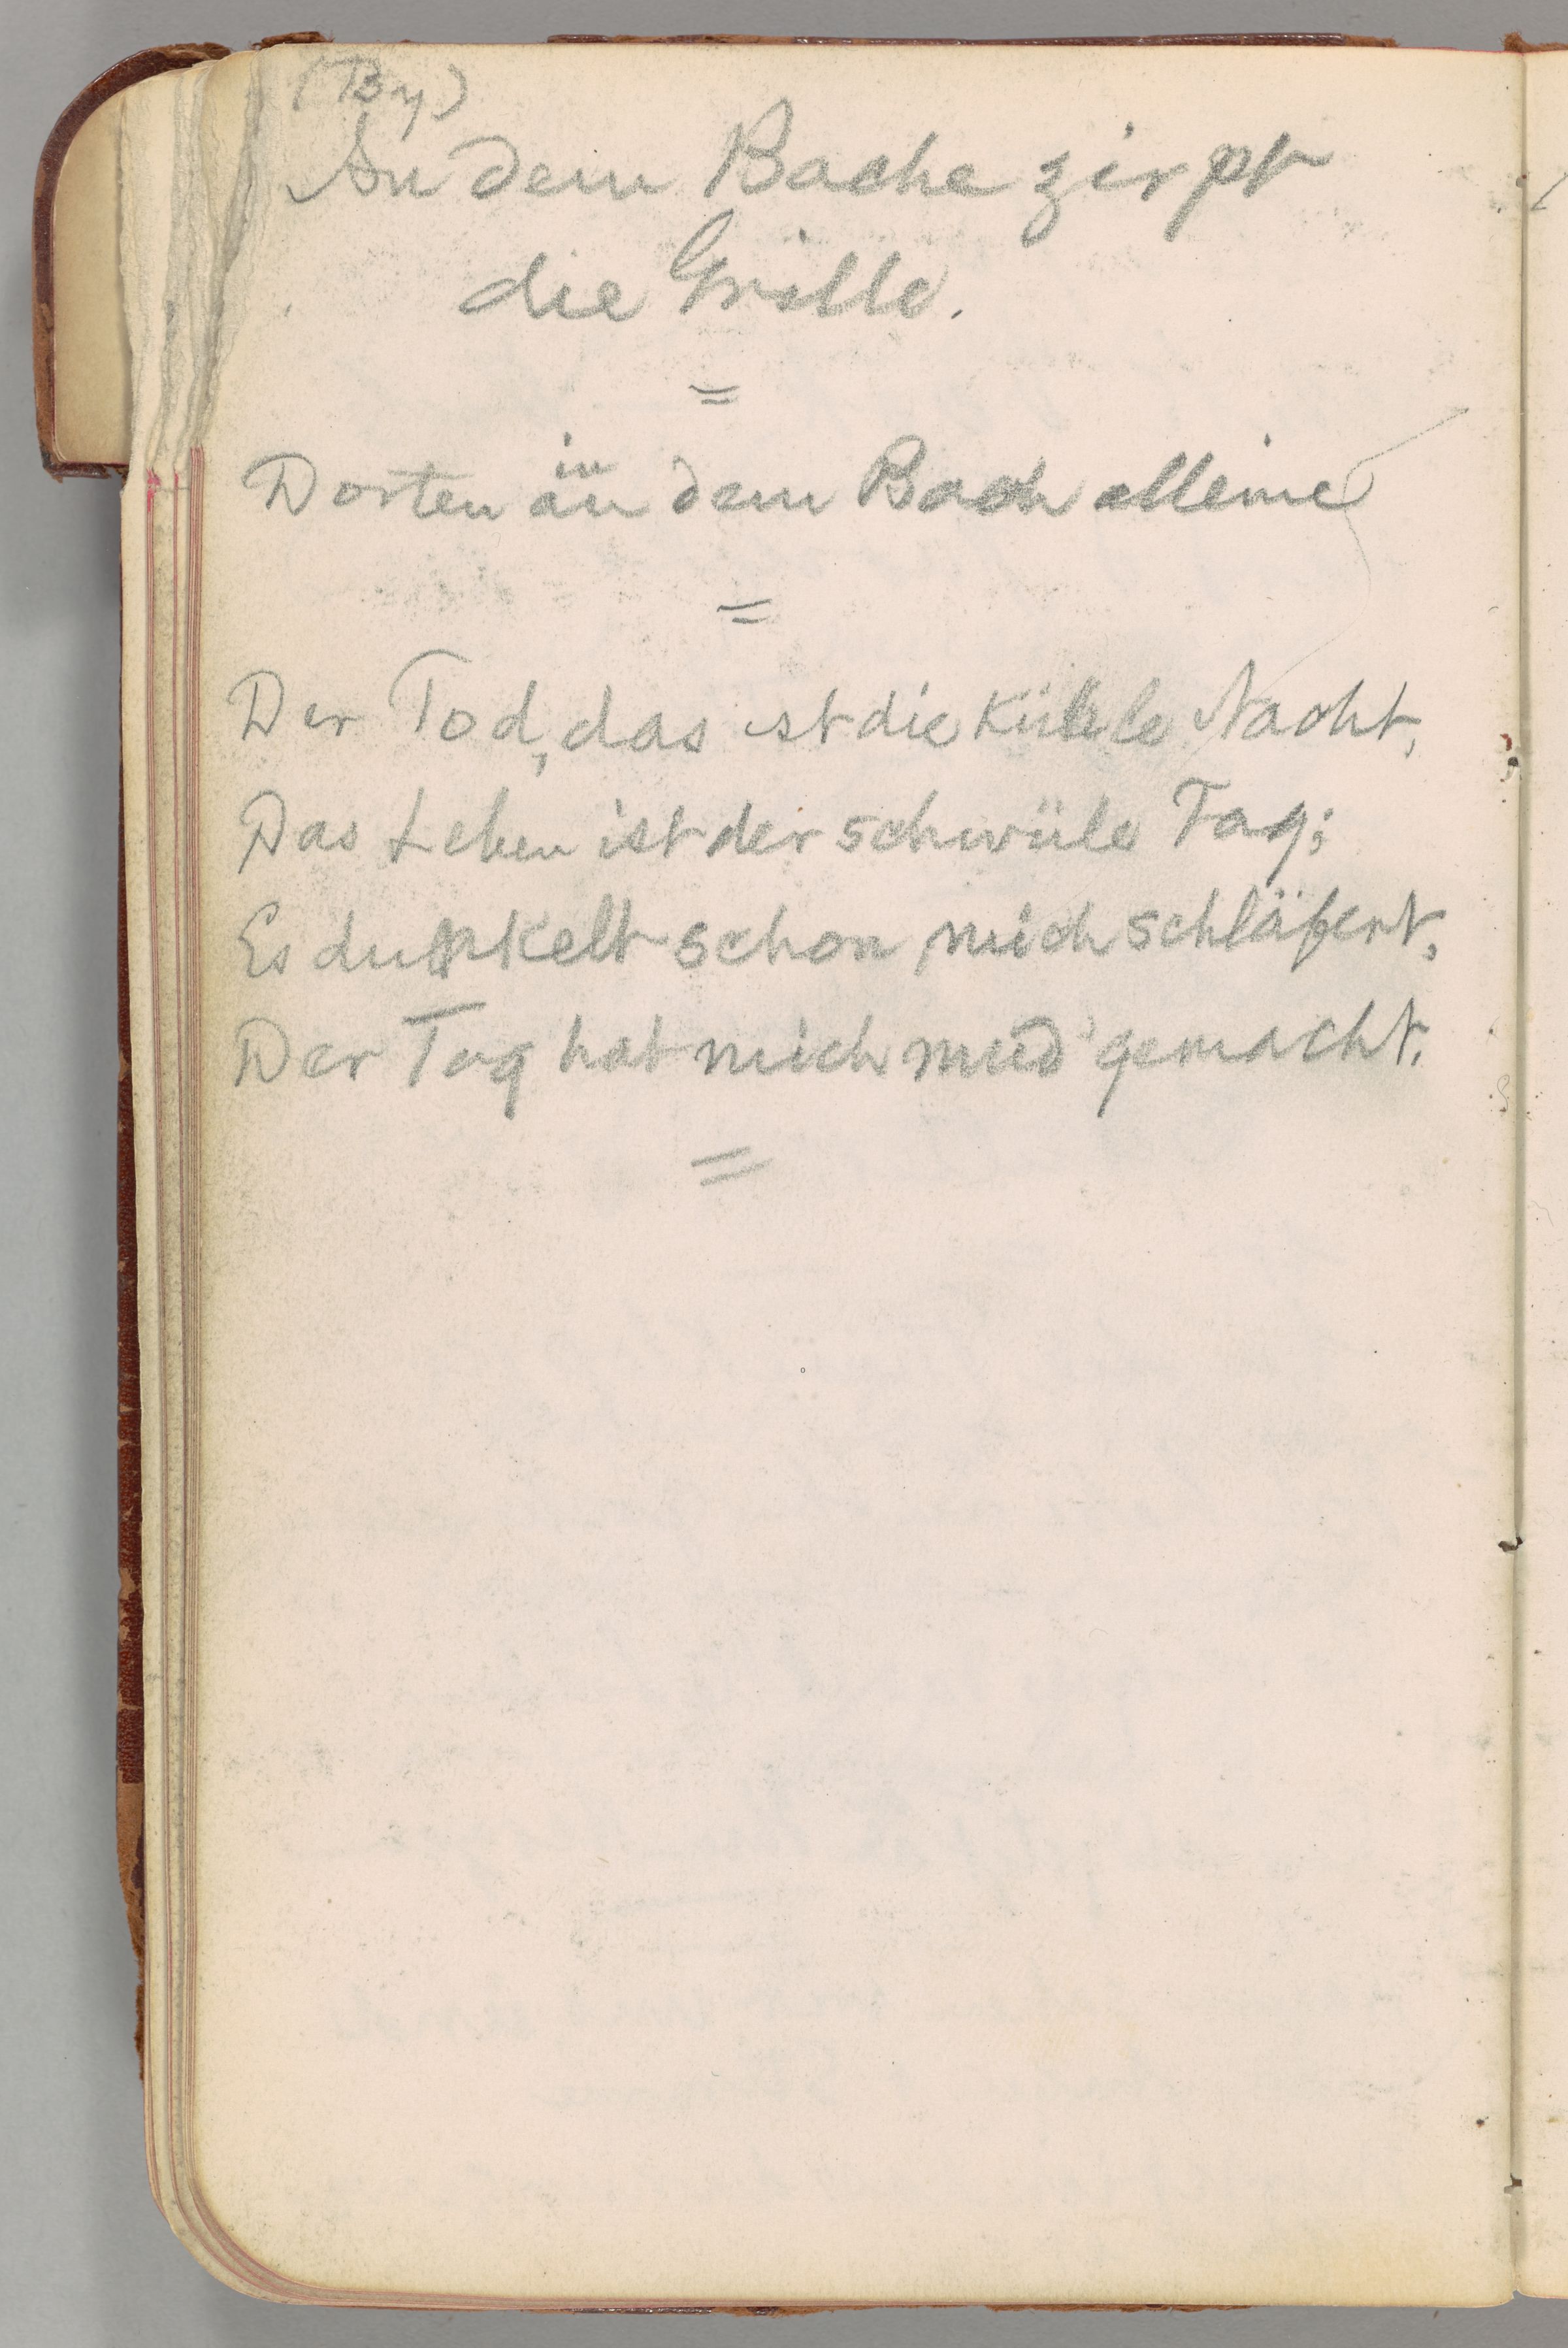 (By)
An dem Bache zirpt
die Grille.
=
in
Dorten an dem Bach alleine
=
Der Tod, das ist die kühle Nacht,
Das Leben ist der schwüle Tag;
Es dunkelt schon, mich schläfert,
Der Tag hat mich müd' gemacht.
=